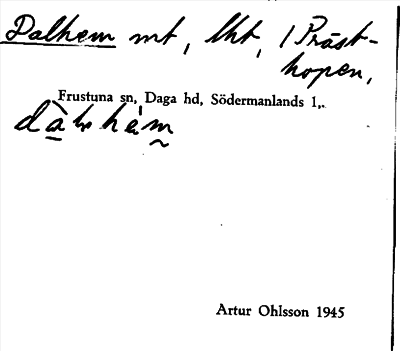 Dalhem mt, lht, i Präst-
hopen,
Frustuna sn, Daga hd, Södermanlands l,.
Artur Ohlsson 1945